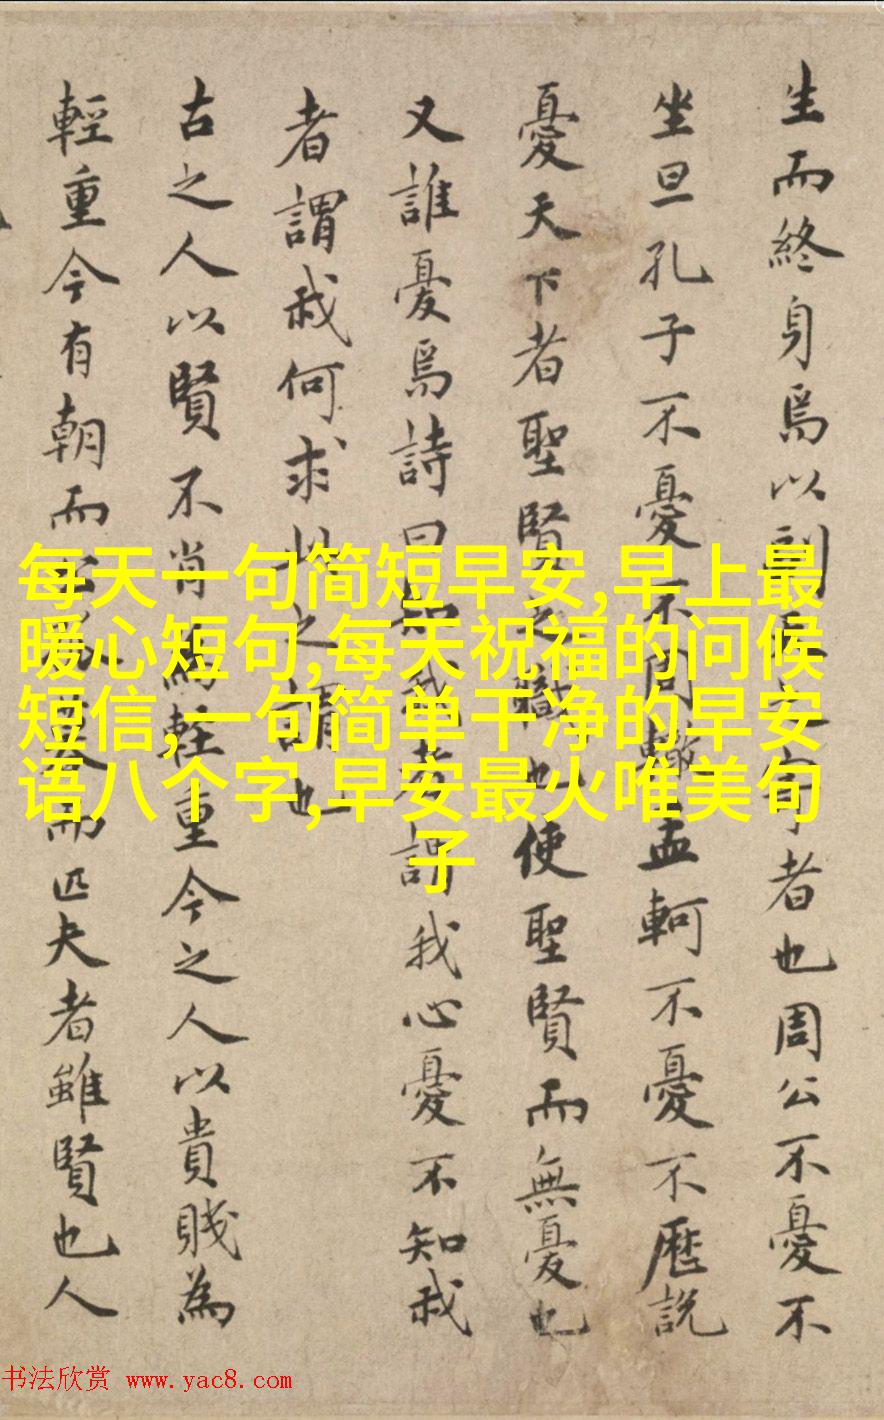 生而終身焉以到者也周公不憂不
坐旦孔子不憂不轍孟軻不憂不歷説
憂天下者聖賢之職也使聖賢而無憂也
又誰憂焉詩曰知我者謂我心憂不知我
者謂我何求此之謂也
古之人以賢不肖為輕重今之人以貴賤為
輕重今有朝而公而匹夫者雖賢也人
每天一句简短早安,早上最
暖心短句,每天祝福的问候
短信,一句简单干净的早安
语八个字,早安最火唯美句
子
书法欣赏 www.yac8.com